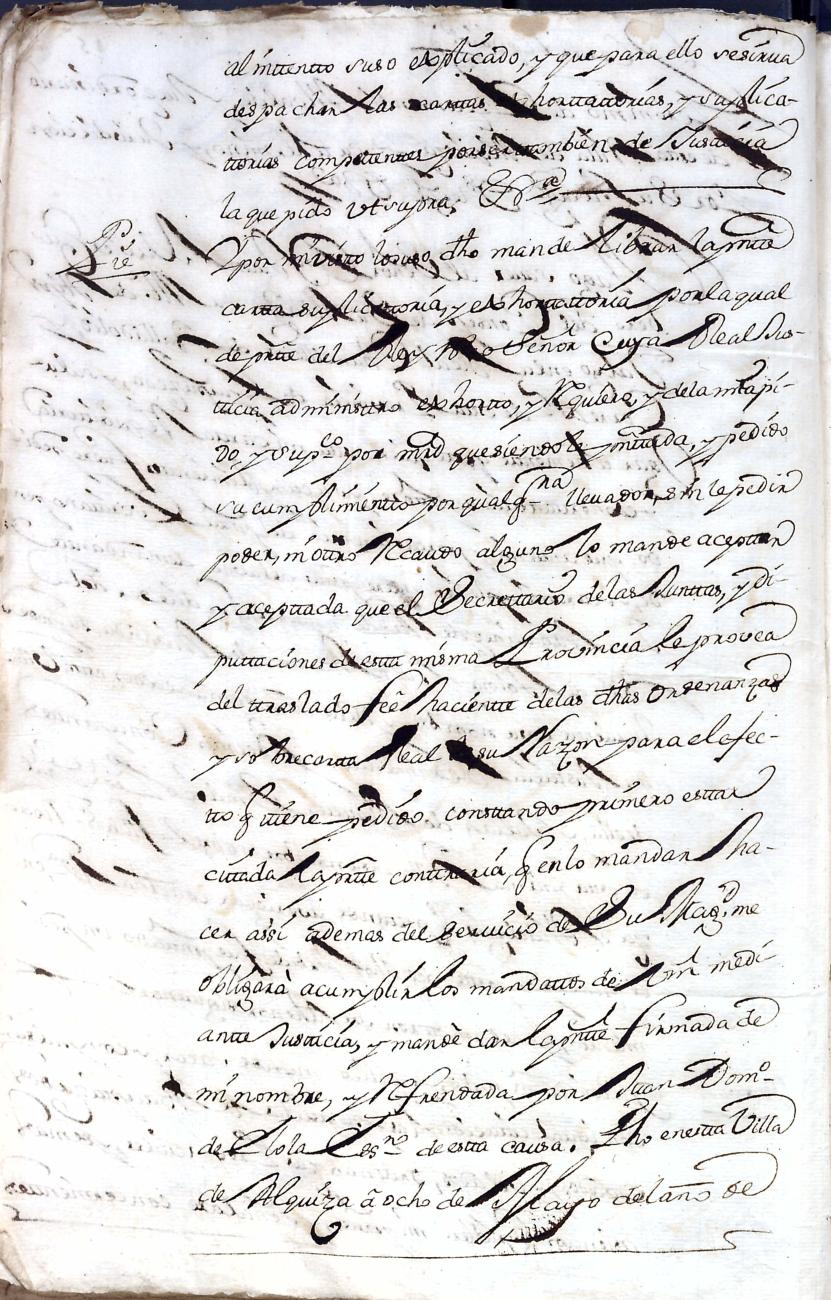 al intento suso esplicado, y que para ello se sirva
despachar las cartas exhortattorias, y suplica-
ttorias competentes pᵒʳ ser tambien de Justicia
la que pido vt supra; &ᵃ
Pie
Y por mi visto lo suso dho mande librar la pnte
cartta suplicattoria, y exhortattoria por la qual
de pte del Rey nro Señor Cuya Real Jus-
ticia administro exhorto, y Requiero, y de la mia pi-
do, y supᶜᵒ por mrd que siendole pntada, y pedido
su cumplimiento por qualqʳᵃ llevador, sin le pedir
poder, ni otro Recaudo alguno lo mande aceptar
y aceptada que el Secrettario de las Junttas, y Di-
puttaciones de estta misma Provincia le provea
del traslado fee haciente de las dhas Ordenanzas
y sobrecarta Real de su Razon para el efec-
tto q̃ tiene pedido. consttando primero esttar
cittada la pte contraria, q̃ en lo mandar ha-
cer assi ademas del servicio de Su Magᵈ, me
obligarà a cumplir los mandattos de Vm medi-
ante Justicia, y mandè dar la pnte firmada de
mi nombre, y Refrendada por Juan Domᵒ
de Elola esⁿᵒ de estta causa. Fho en estta Villa
de Alquiza â ocho de Mayo del año de